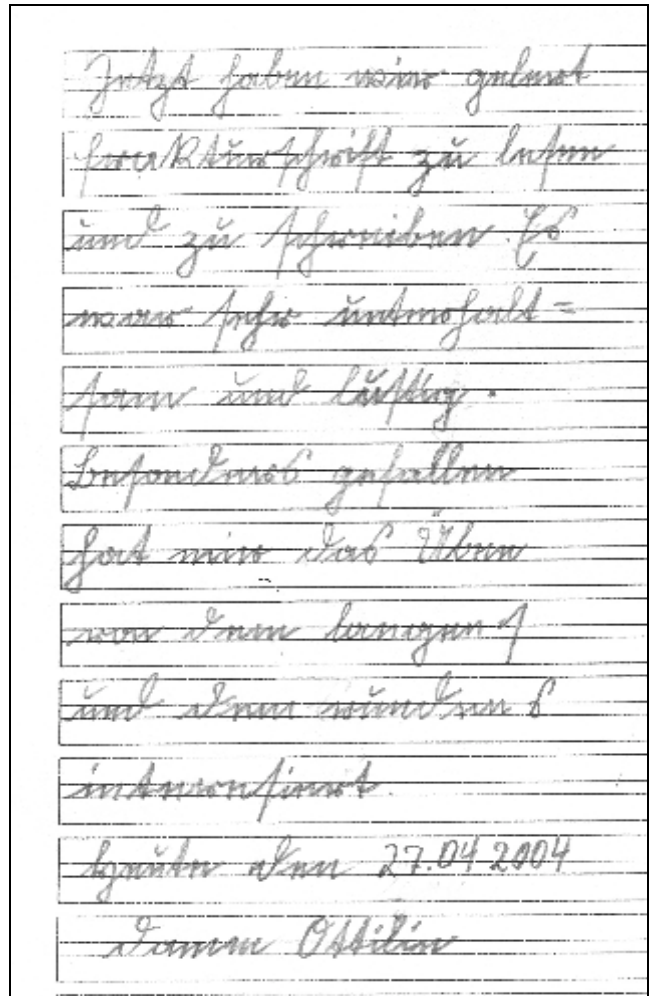 Jetzt haben wir gelernt
frakturschrift zu lesen
und zu schreiben. Es
war sehr unterhalt=
sam und lustig.
Besonders gefallen
hat mir das Üben
von dem langen ſ
und dem runden s
interresiert.
Heute den 27.04 2004
Damm Ottilie